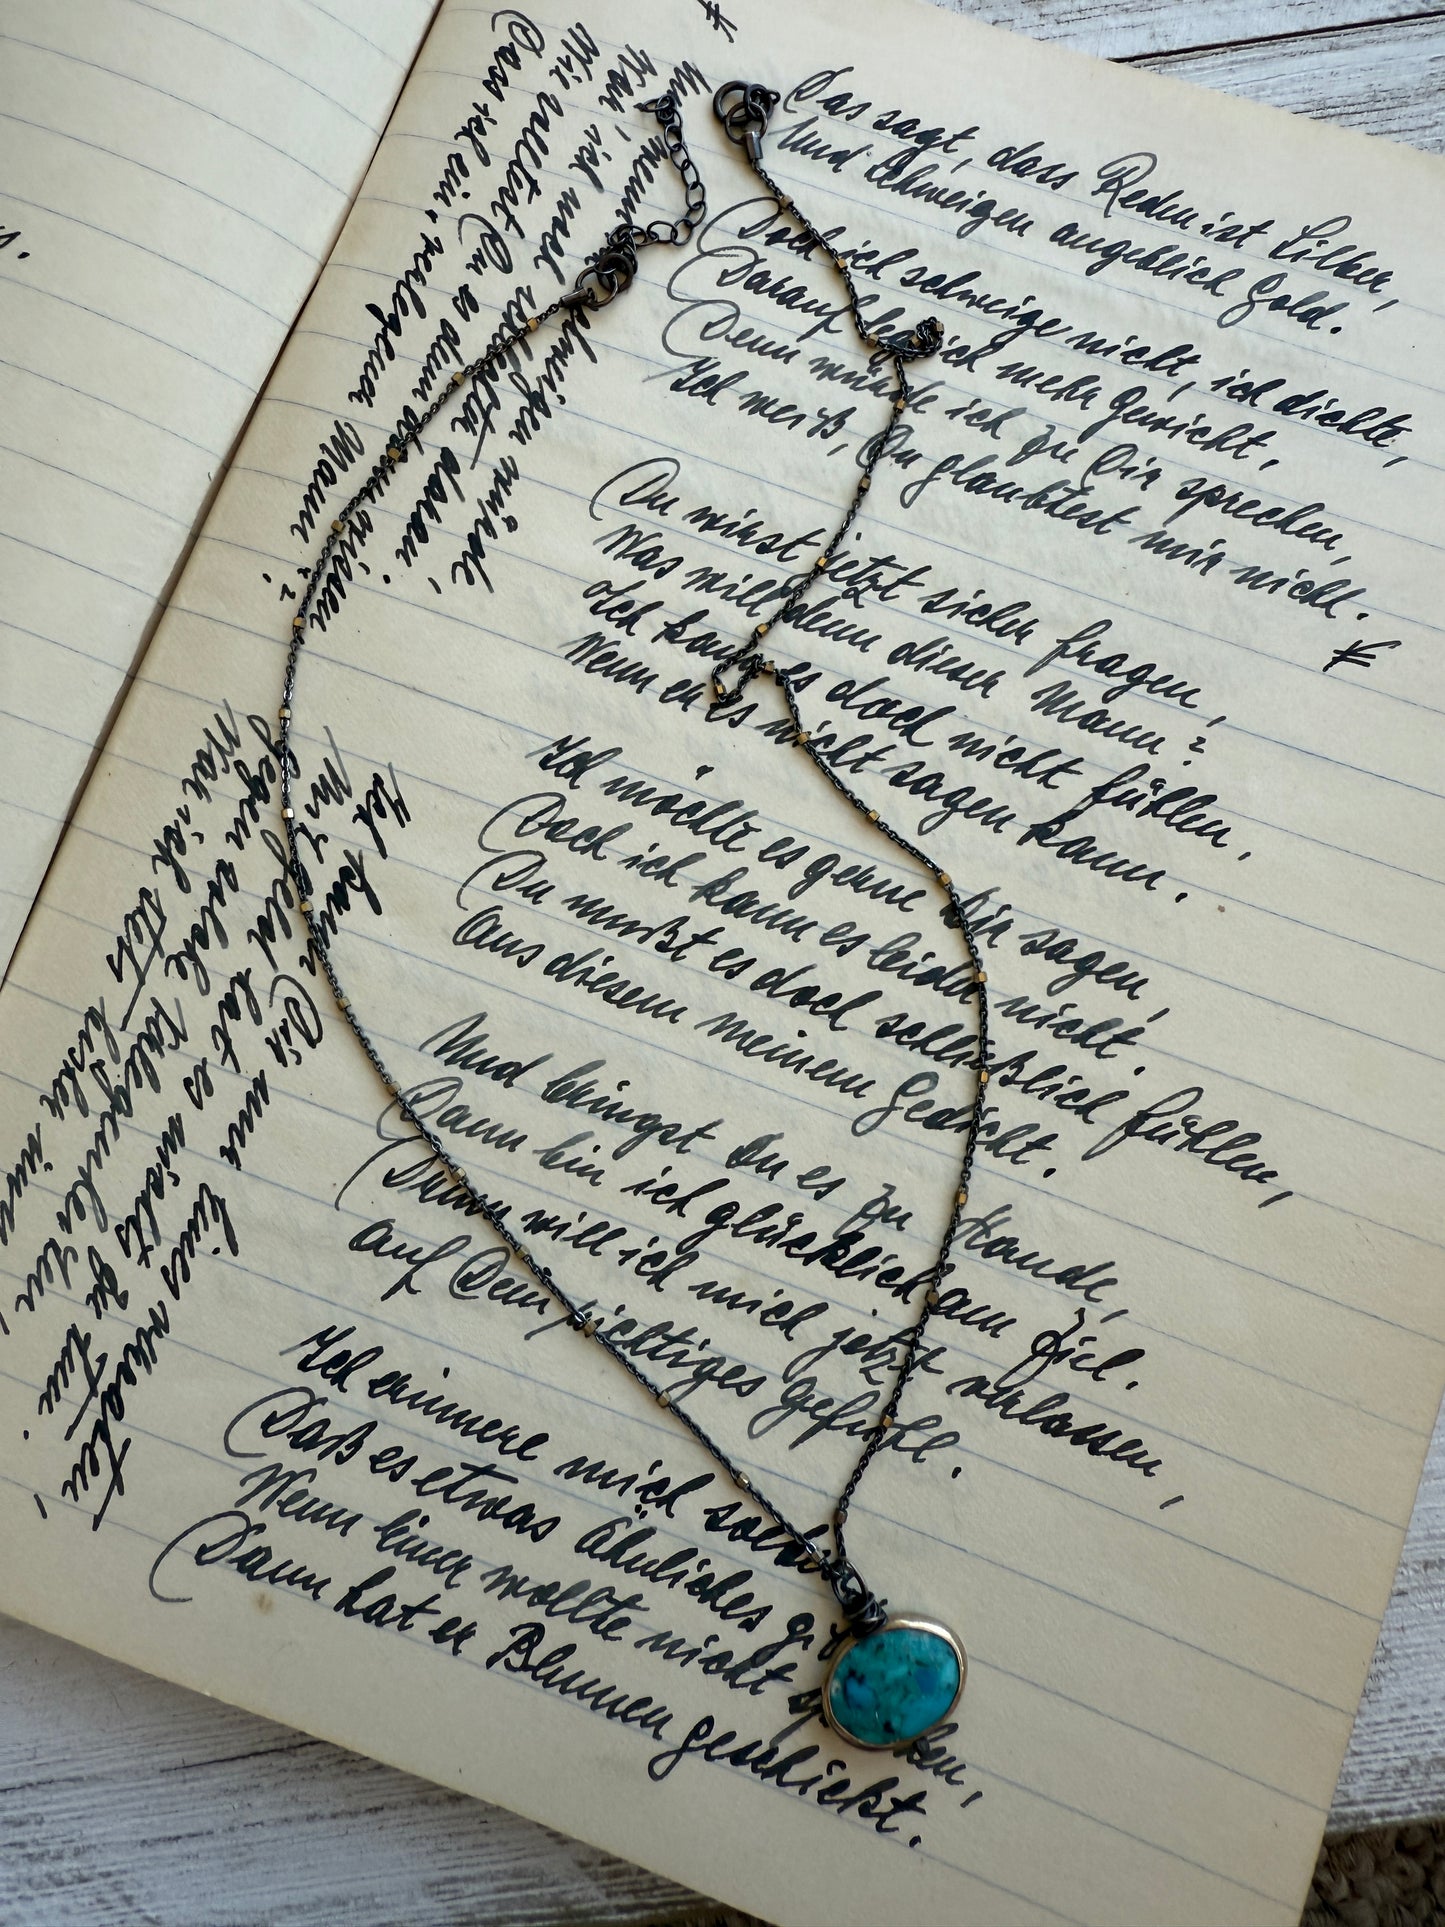 Das sagt, dass Reden ist Silber,
Und Schweigen angeblich Gold.
Doch ich schweige nicht, ich dichte,
Darauf leg ich mehr Gewicht,
Denn würde ich zu Dir sprechen,
Ich weiß, Du glaubtest mir nicht.
Du wirst jetzt sicher fragen,
Was will denn dieser Mann?
Ich kann es doch nicht fühlen,
Wenn er es nicht sagen kann.
Ich möchte es gerne Dir sagen,
Doch ich kann es leider nicht.
Du mußt es doch schließlich fühlen,
Aus diesem meinem Gedicht.
Und bringst Du es zu Hande,
Dann bin ich glücklich am Ziel.
Drum will ich mich jetzt verlassen,
Auf Dein richtiges Gefühl.
Ich erinnere mich
Daß es etwas Ähnliches
Wenn einer wollte nicht
Dann hat er Blumen geschickt.
schweigen würde,
War' ich wohl selbst daran.
Mit selbst Du es denn dann wissen
Dass ich ein verlegener Mann?
Ich kann Dir nur eines verraten,
Mit Geld hat es nichts zu tun.
Gegen solche
War ich stets bisher immun